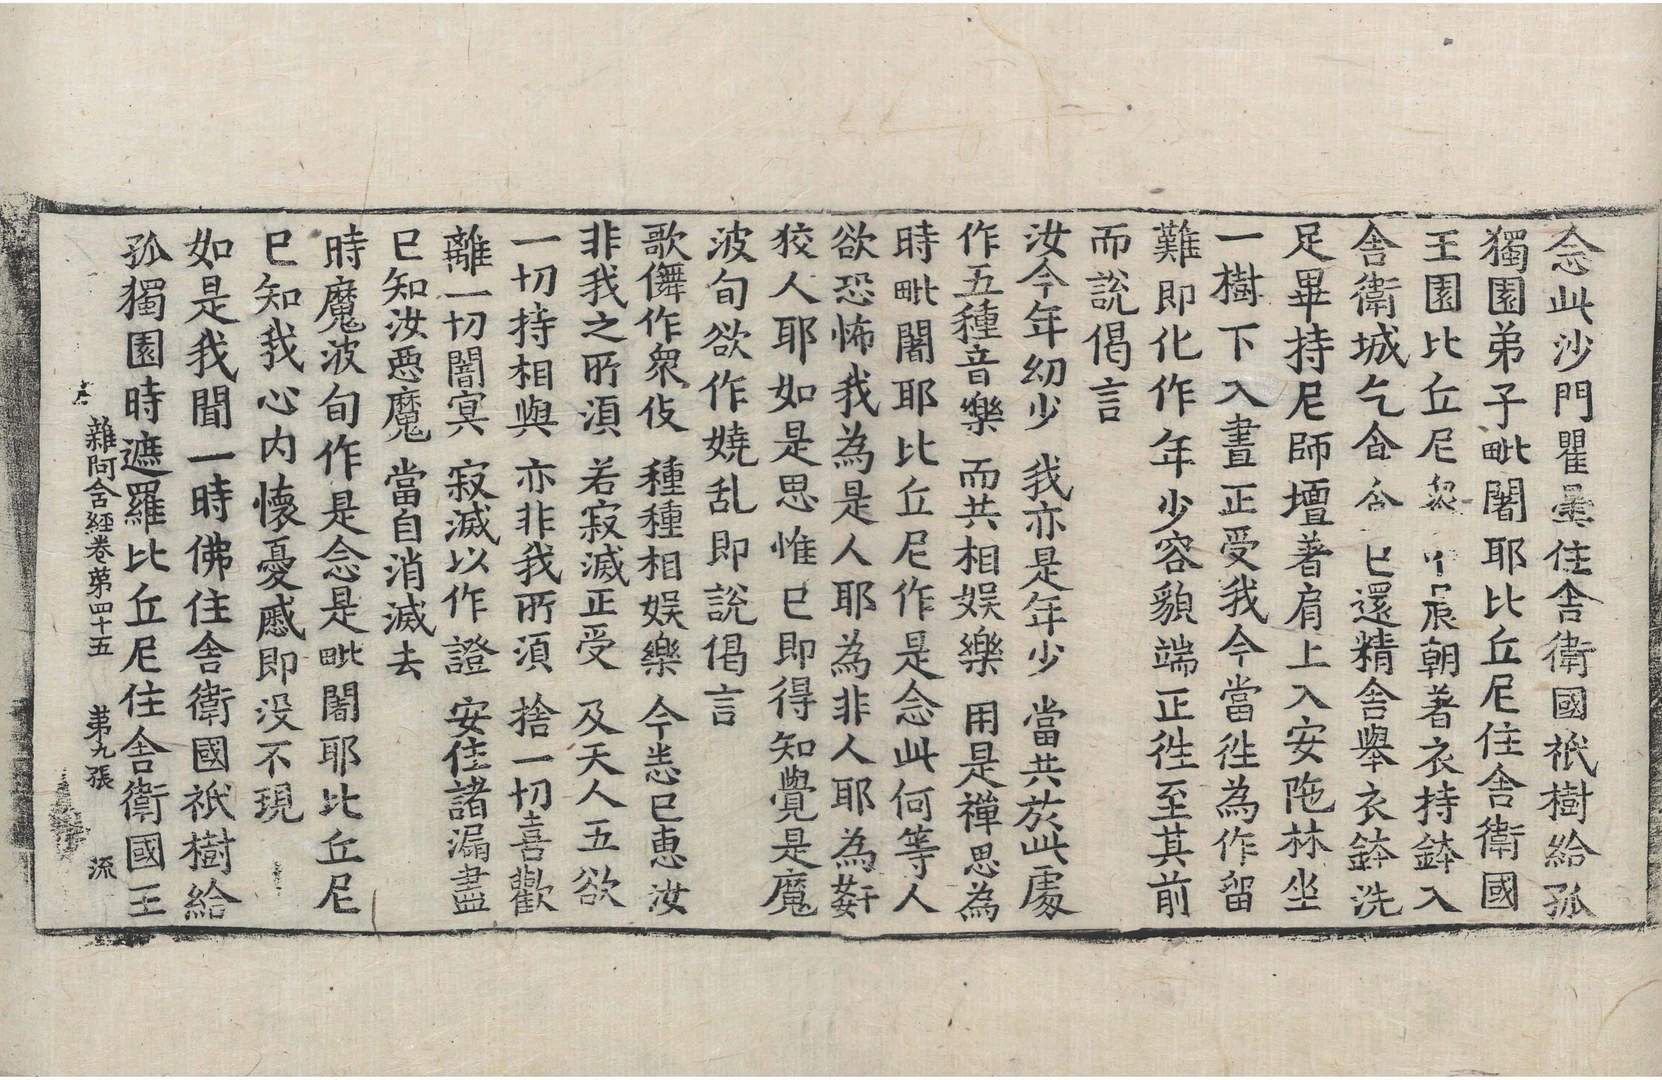 念此沙門瞿曇住舍衛國祇樹給孤
獨園弟子毗闍耶比丘尼住舍衛國
王園比丘尼衆中晨朝著衣持鉢入
舍衛城乞食食已還精舍舉衣鉢洗
足畢持尼師壇著肩上入安陁林坐
一樹下入晝正受我今當往為作留
難即化作年少容貌端正徃至其前
而說偈言
汝今年幼少 我亦是年少 當共於此處
作五種音樂 而共相娛樂 用是禪思為
時毗闍耶比丘尼作是念此何等人
欲恐怖我為是人耶為非人耶為姧
狡人耶如是思惟已即得知覺是魔
波旬欲作嬈乱即說偈言
歌儛作衆伎 種種相娛樂 今悉已惠汝
非我之所湏 若寂滅正受 及天人五欲
一切持相與 亦非我所湏 捨一切喜歡
離一切闇冥 寂滅以作證 安住諸漏盡
已知汝惡魔 當自消滅去
時魔波旬作是念是毗闍耶比丘尼
已知我心内懷憂慼即没不現
如是我聞一時佛住舍衛國祇樹給
孤獨園時遮羅比丘尼住舍衛國王
雜阿含經卷第四十五 第九張 流